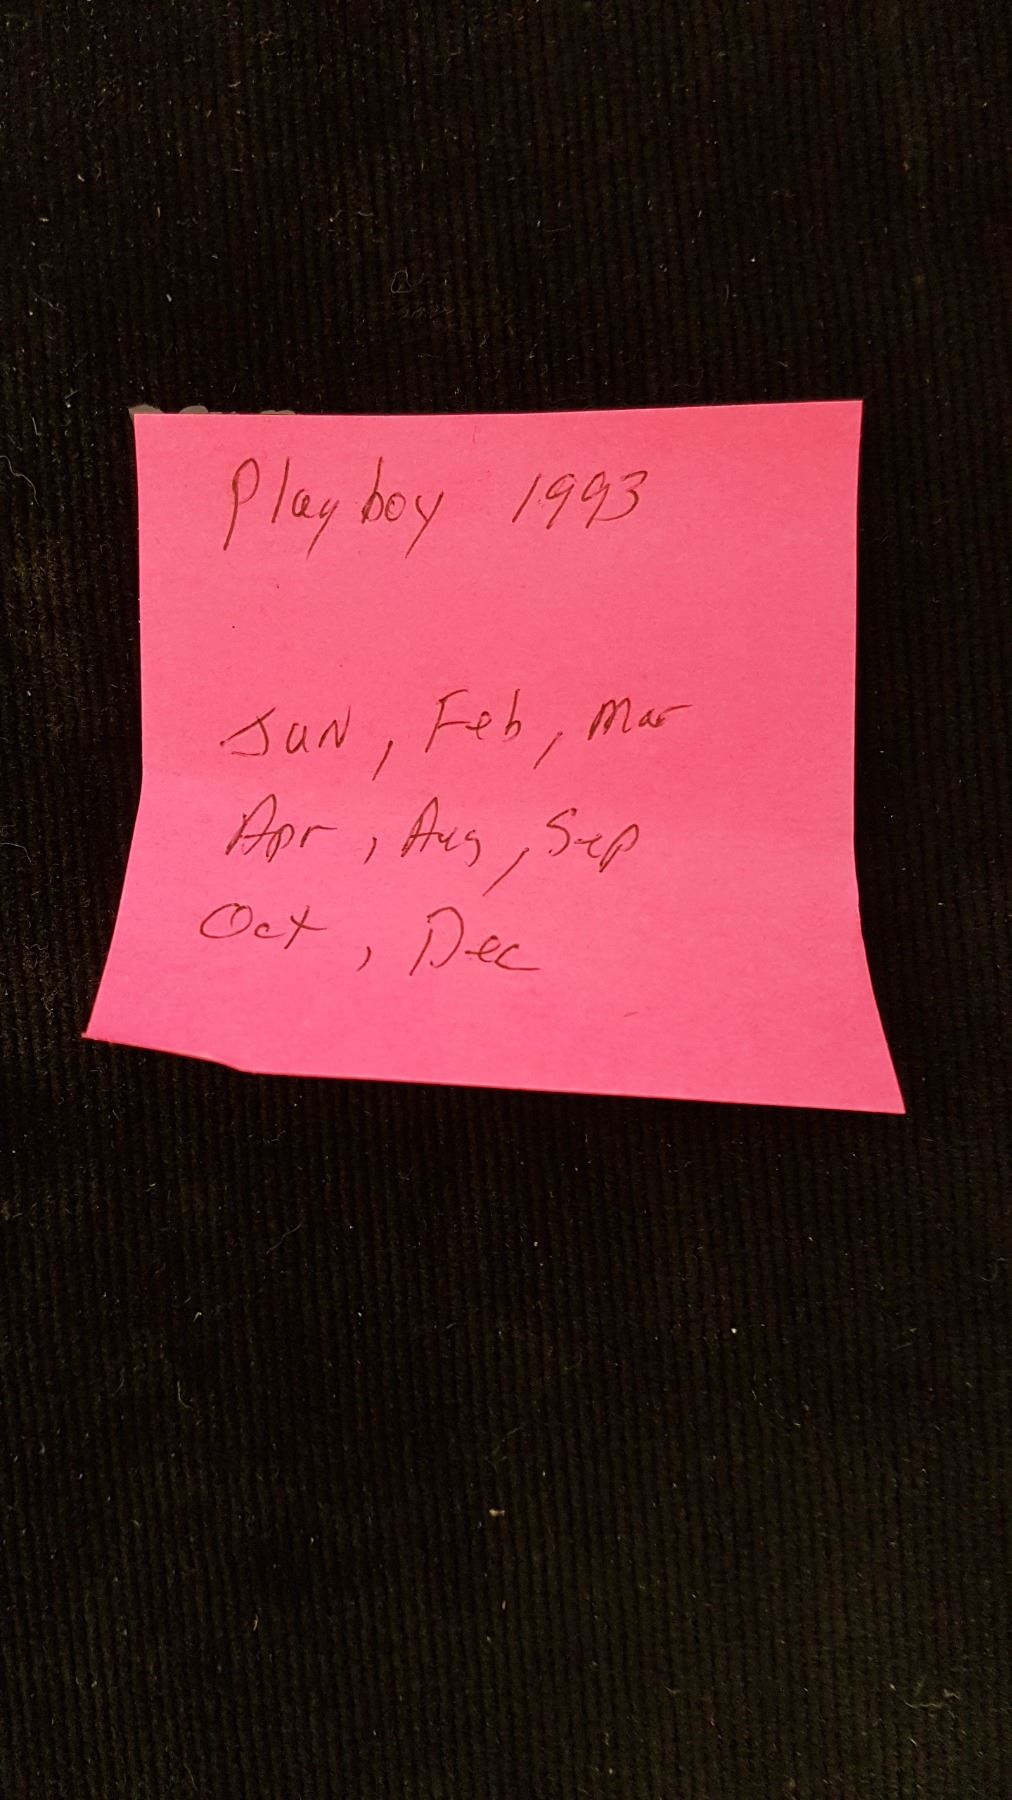 Playboy 1993
Jan, Feb, Mar
Apr, Aug, Sep
Oct, Dec